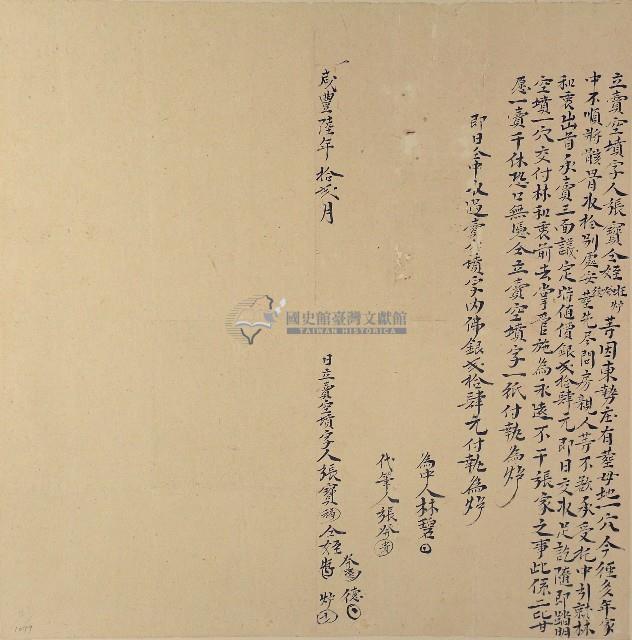 立賣空墳字人張寶仝姪旺炉等因東勢庄有塟母地一穴今經多年家
中不順將骸骨收拾別處安塟先尽問房親人等不欲承受托中引就林
和衷出首承賣三面議定時值價銀弍拾肆元即日交收足訖隨即踏明
空墳一穴交付林和衷前去掌管施為永遠不干張家之事此係二比甘
愿一賣千休恐口無憑仝立賣空墳字一紙付執為炤
即日仝中收過賣空墳字內佛銀弍拾肆元付執為炤
為中人林碧
代筆人張
咸豐陸年拾弍月 日立賣空墳字人張寶仝姪 炉
德
國史館臺灣文獻館
TAIWAN HISTORICA